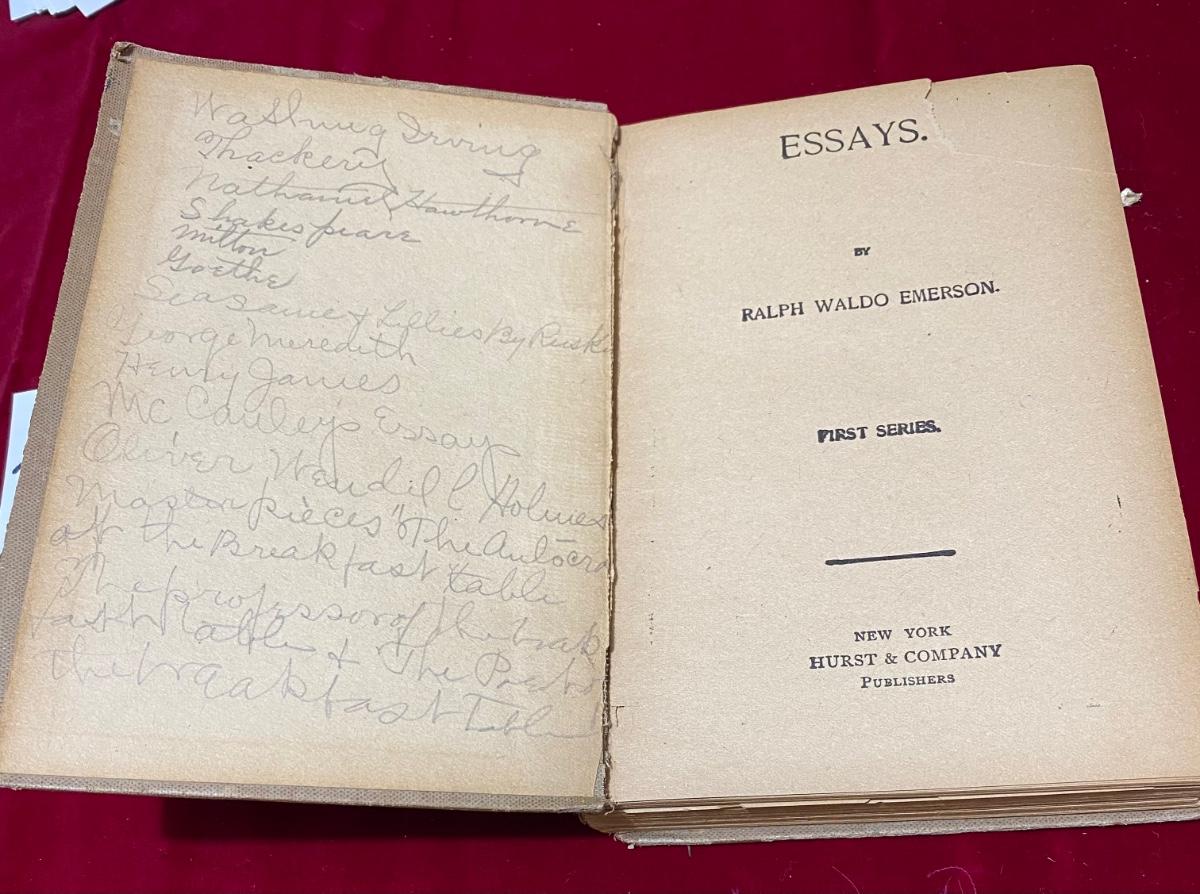 Washing Irving
Thackery
Nathaniel Hawthorne
Shakespeare
Milton
Goethe
Seasame & Lillies By Ruski
George Meredith
Henry James
McCauley's Essays
Oliver Wendill Holmes
Masterpieces "The Autocra
at the Breakfast table
The professor of the brak
fast table & The
the braakfast Table
ESSAYS.
BY
RALPH WALDO EMERSON.
FIRST SERIES.
NEW YORK
HURST & COMPANY
PUBLISHERS